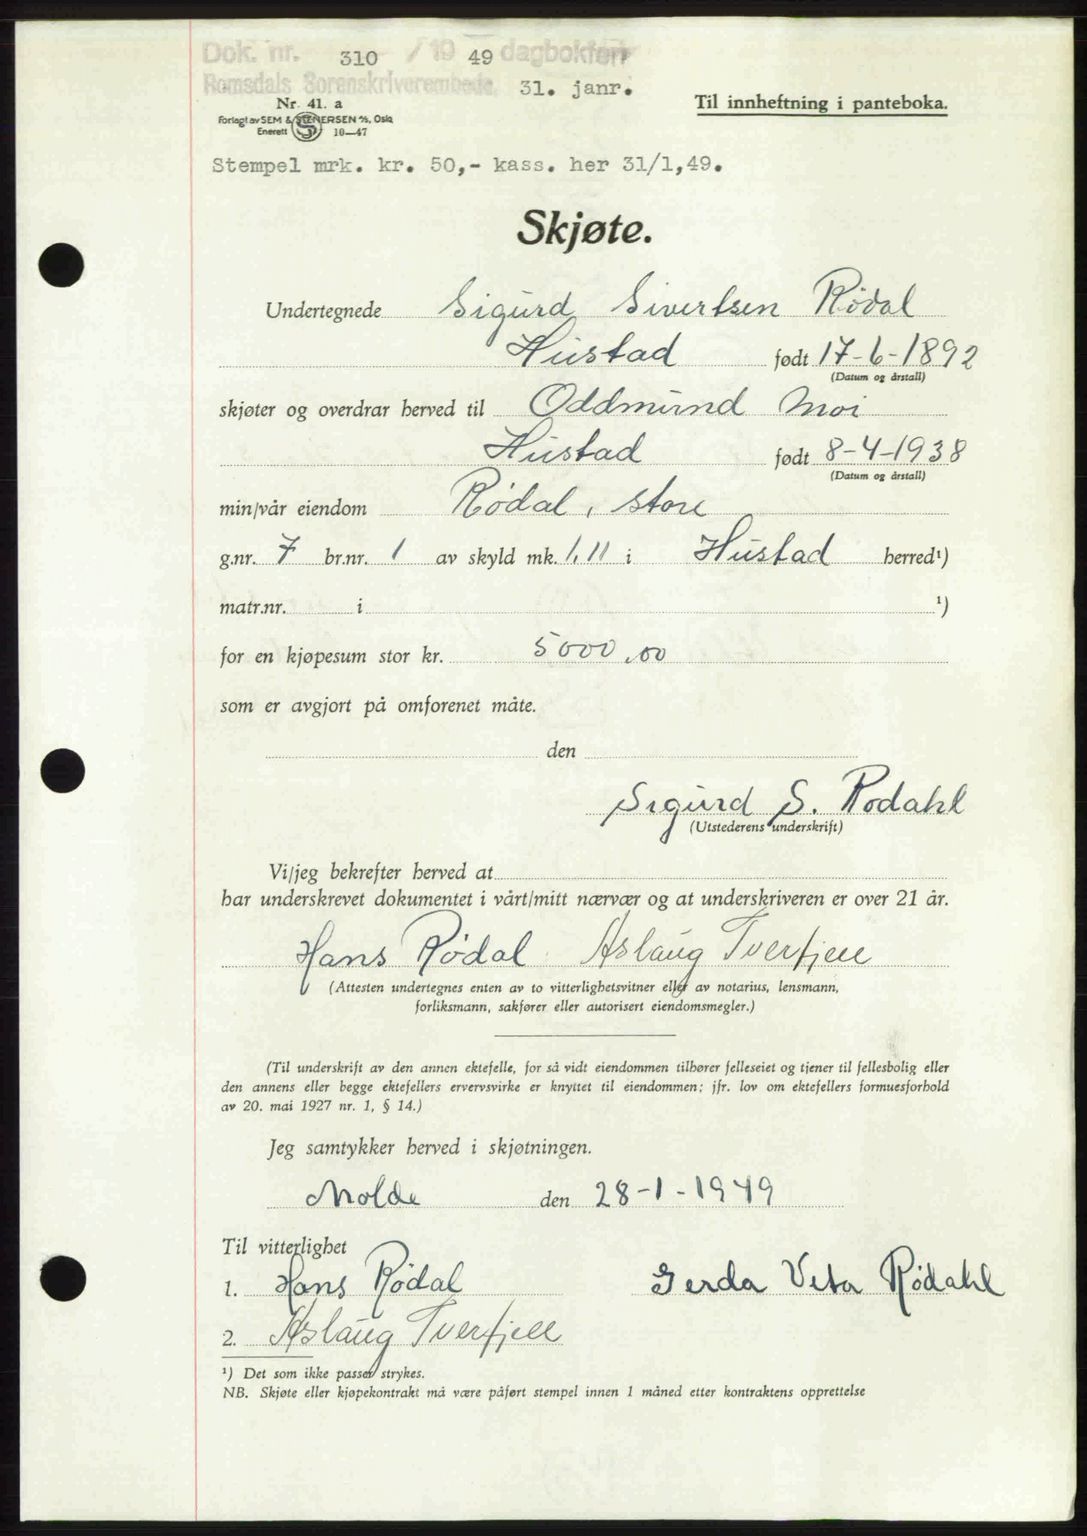 Dok. nr. 310 / 19 49 dagbokført
Romsdals Sorenskriverembede, 31. janr.
Nr. 41. a
Forlagt av SEM & STENERSEN A/S, Oslo
Enerett S 10—47
Til innheftning i panteboka.
Stempel mrk. kr. 50,- kass. her 31/1,49.
Skjøte.
Undertegnede Sigurd Sivertsen Rødal
Hustad født 17-6-1892
(Datum og årstall)
skjøter og overdrar herved til Oddmund Moi
Hustad født 8-4-1938
(Datum og årstall)
min/vår eiendom Rødal, store
g.nr. 7 br.nr. 1 av skyld mk. 1,11 i Hustad herred¹)
matr.nr. i ¹)
for en kjøpesum stor kr. 5000,00
som er avgjort på omforenet måte.
den
Sigurd S. Rødahl
(Utstederens underskrift)
Vi/jeg bekrefter herved at
har underskrevet dokumentet i vårt/mitt nærvær og at underskriveren er over 21 år.
Hans Rødal Aslaug Tverfjell
(Attesten undertegnes enten av to vitterlighetsvitner eller av notarius, lensmann,
forliksmann, sakfører eller autorisert eiendomsmegler.)
(Til underskrift av den annen ektefelle, for så vidt eiendommen tilhører felleseiet og tjener til fellesbolig eller
den annens eller begge ektefellers ervervsvirke er knyttet til eiendommen; jfr. lov om ektefellers formuesforhold
av 20. mai 1927 nr. 1, § 14.)
Jeg samtykker herved i skjøtningen.
Molde den 28-1-1949
Til vitterlighet
1. Hans Rødal Gerda Veta Rødahl
2. Aslaug Tverfjell
¹) Det som ikke passer strykes.
NB. Skjøte eller kjøpekontrakt må være påført stempel innen 1 måned etter kontraktens opprettelse